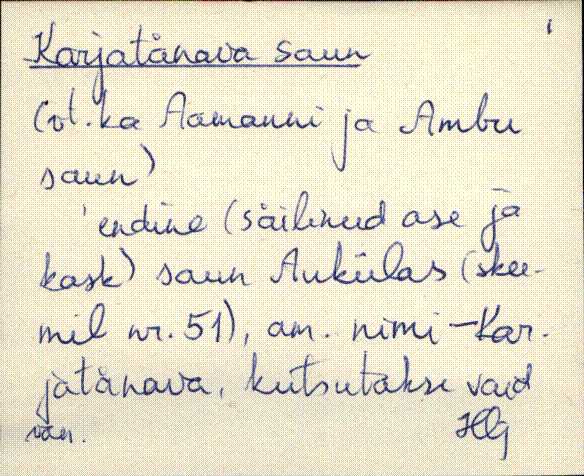 Karjatänava saun
(vt. ka Aamanni ja Ambu
saun)
'endine (säilinud ase ja
kask) saun Aukülas (skee-
mil nr. 51), am. nimi - Kar-
jatänava, kutsutakse vaid
van.
HG